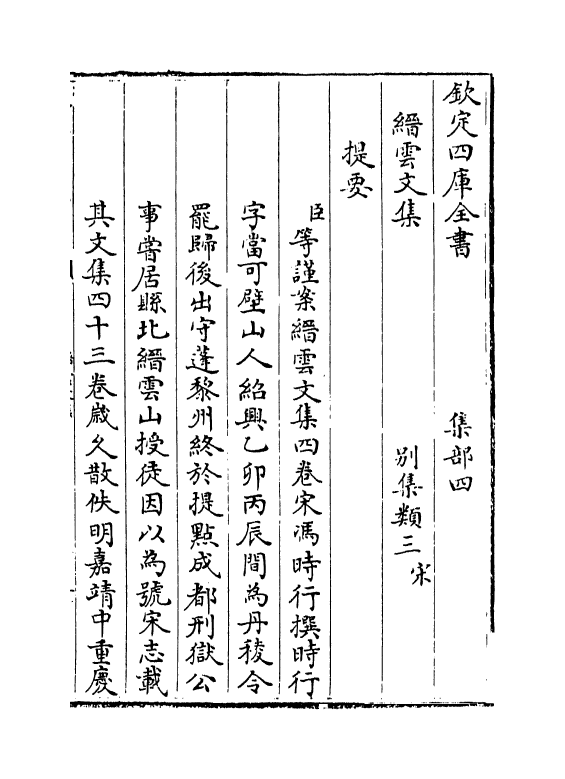 欽定四庫全書　　　　集部四
縉雲文集　　　　　　別集類三宋
提要
臣等謹案縉雲文集四卷宋馮時行撰時行
字當可壁山人紹興乙卯丙辰間為丹稜令
罷歸後出守蓬黎州終於提點成都刑獄公
事嘗居縣北縉雲山授徒因以為號宋志載
其文集四十三卷歲久散佚明嘉靖中重慶